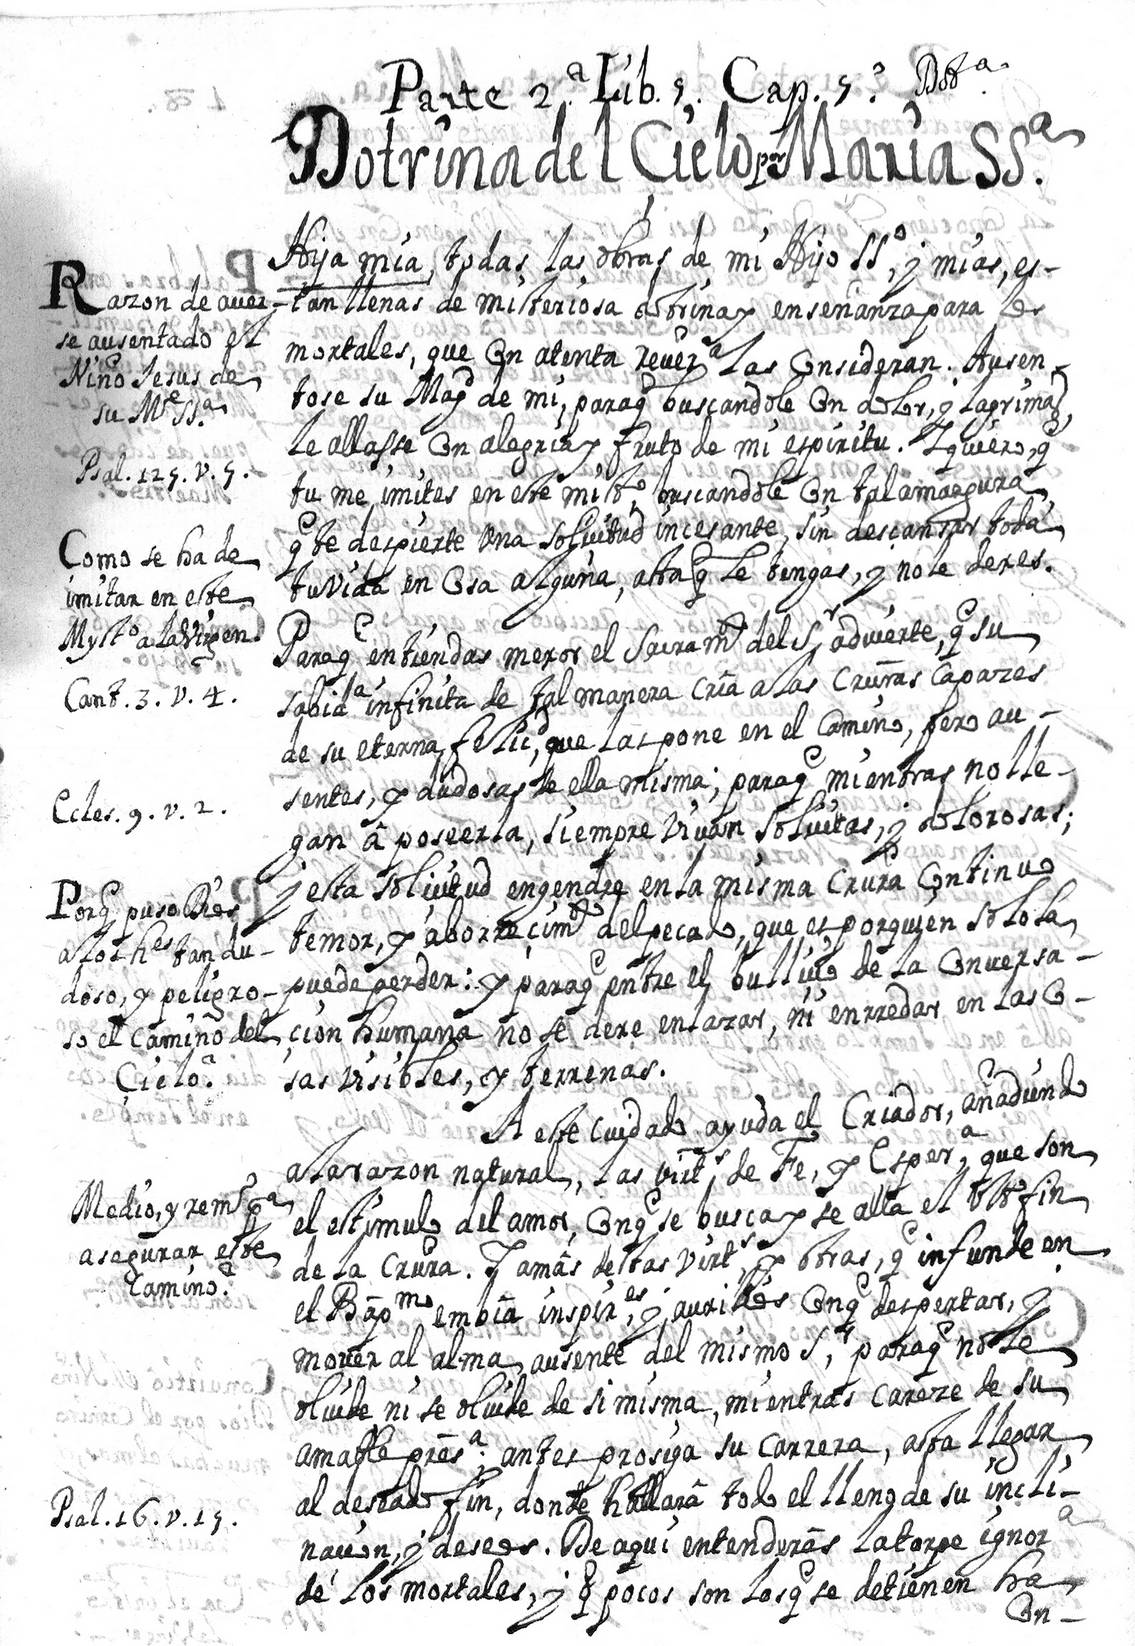 Parte 2.ª Lib. 5. Cap. 5.º Dotª.
Dotrina del Cielo por Maria SSª.
Hija mia, todas las obras de mi Hijo SSº, y mias, es-
tan llenas de misteriosa dotrina y enseñanza para los
mortales, que con atenta reverª las consideran. Ausen
tose su Magd de mi, paraq buscandole con dolor, y lagrimas,
le allasse con alegria y fruto de mi espiritu. I quiero, q
tu me imites en este mistº, buscandole con tal amargura
q te despierte una solicitud incesante, sin descansar toda
tu vida en cosa alguna, asta q le tengas, y no le dexes.
Paraq entiendas mexor el Sacramto del Sr advierte, q su
sabidª infinita de tal manera cria a las Cruras capazes
de su eterna felicd, que las pone en el camino, pero au-
sentes, y dudosas de ella misma; paraq mientras no lle-
gan â poseerla, siempre vivan solicitas, y dolorosas;
y esta solicitud engendre en la misma Crura continuo
temor, y aborrecimto del pecado, que es por quien solo la
puede perder: y paraq entre el bullicio de la conversa-
cion humana no se dexe enlazar, ni enrredar en las co-
sas visibles, y terrenas.
A este cuidado ayuda el Criador, añadiendo
a la razon natural, las virts de Fe, y Esperª, que son
el estimulo del amor, conq se busca y se alla el ultº fin
de la Crura. Y amâs destas virts, y otras, q infunde en
el Bapmo embîa inspires, y auxilios conq despertar, y
mover al alma ausente del mismo Sr, paraq no le
olvide ni se olvide de si misma, mientras careze de su
amable presª; antes prosiga su carrera, asta llegar
al deseado fin, donde hallarâ todo el lleno de su incli-
nacion, y deseos. De aqui entenderâs la torpe ignorª
de los mortales, y q pocos son los q se detienen ha
con-
Razon de aver-
se ausentado el
Niño Jesus de
su Me SSª.
Psal. 125. v. 5.
Como se ha de
imitar en este
Mystº a la Virgen.
Cant. 3. v. 4.
Ecles. 9. v. 2.
Porq puso Dios
a los hes tan du-
doso, y peligro-
so el camino del
Cielo.
Medio, y remº pª
asegurar este
camino.
Psal. 16. v. 15.